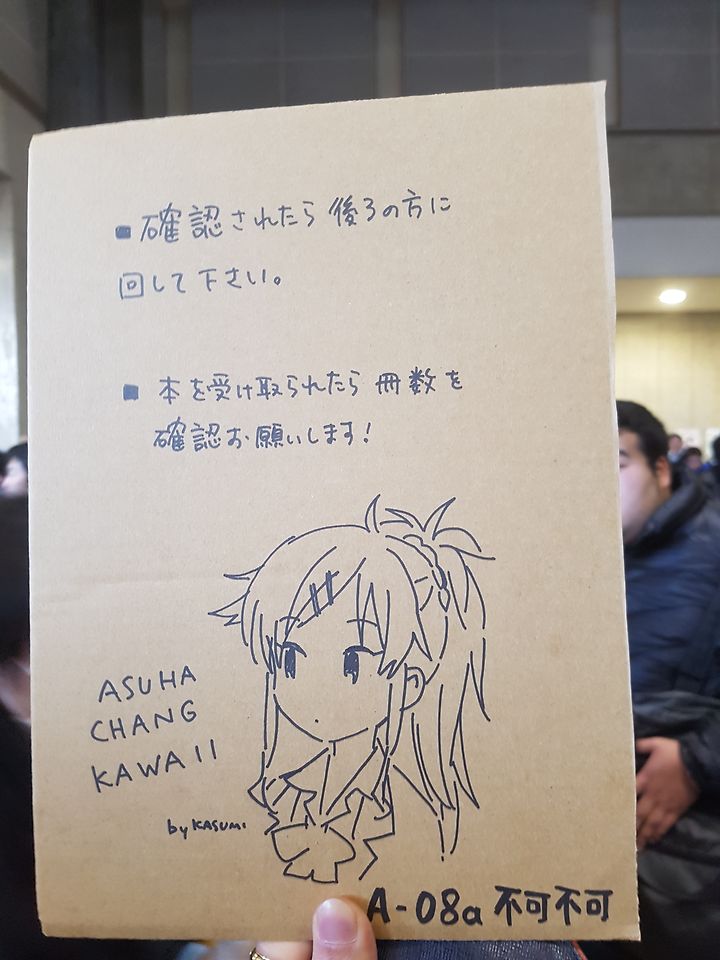 ■確認されたら後ろの方に
回して下さい。
■本を受け取られたら冊数を
確認お願いします！
ASUHA
CHANG
KAWAII
by KASUMI
A-08a 不可不可